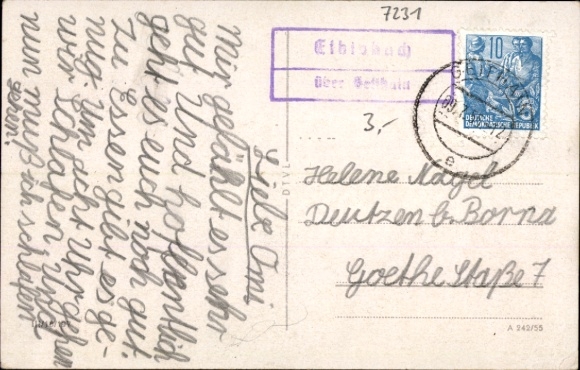 7231
über Geithain
10
DEUTSCHE
DEMOKRATISCHE REPUBLIK
GEITHAIN
e
3,-
DTVL
Helene Nagel
Deutzen b. Borna
Goethe Staße 7
A 242/55
Liebe Omi
mir gefählt es sehr
gut und hoffentlich
geht es euch noch gut.
Zu Essen gibt es ge-
nug. um acht Uhr gehen
wir schlafen und
nun muß ich schlafen
geen.